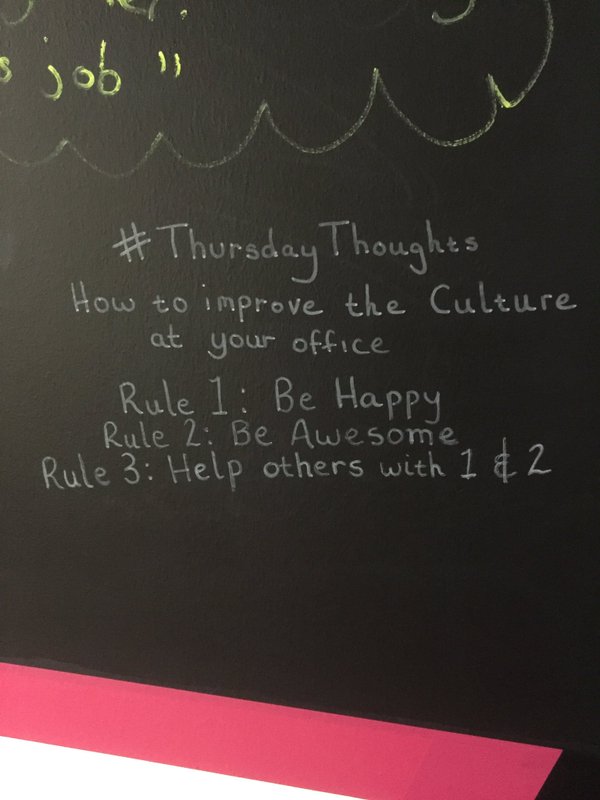 s job "
#ThursdayThoughts
How to improve the Culture
at your office
Rule 1: Be Happy
Rule 2: Be Awesome
Rule 3: Help others with 1 & 2